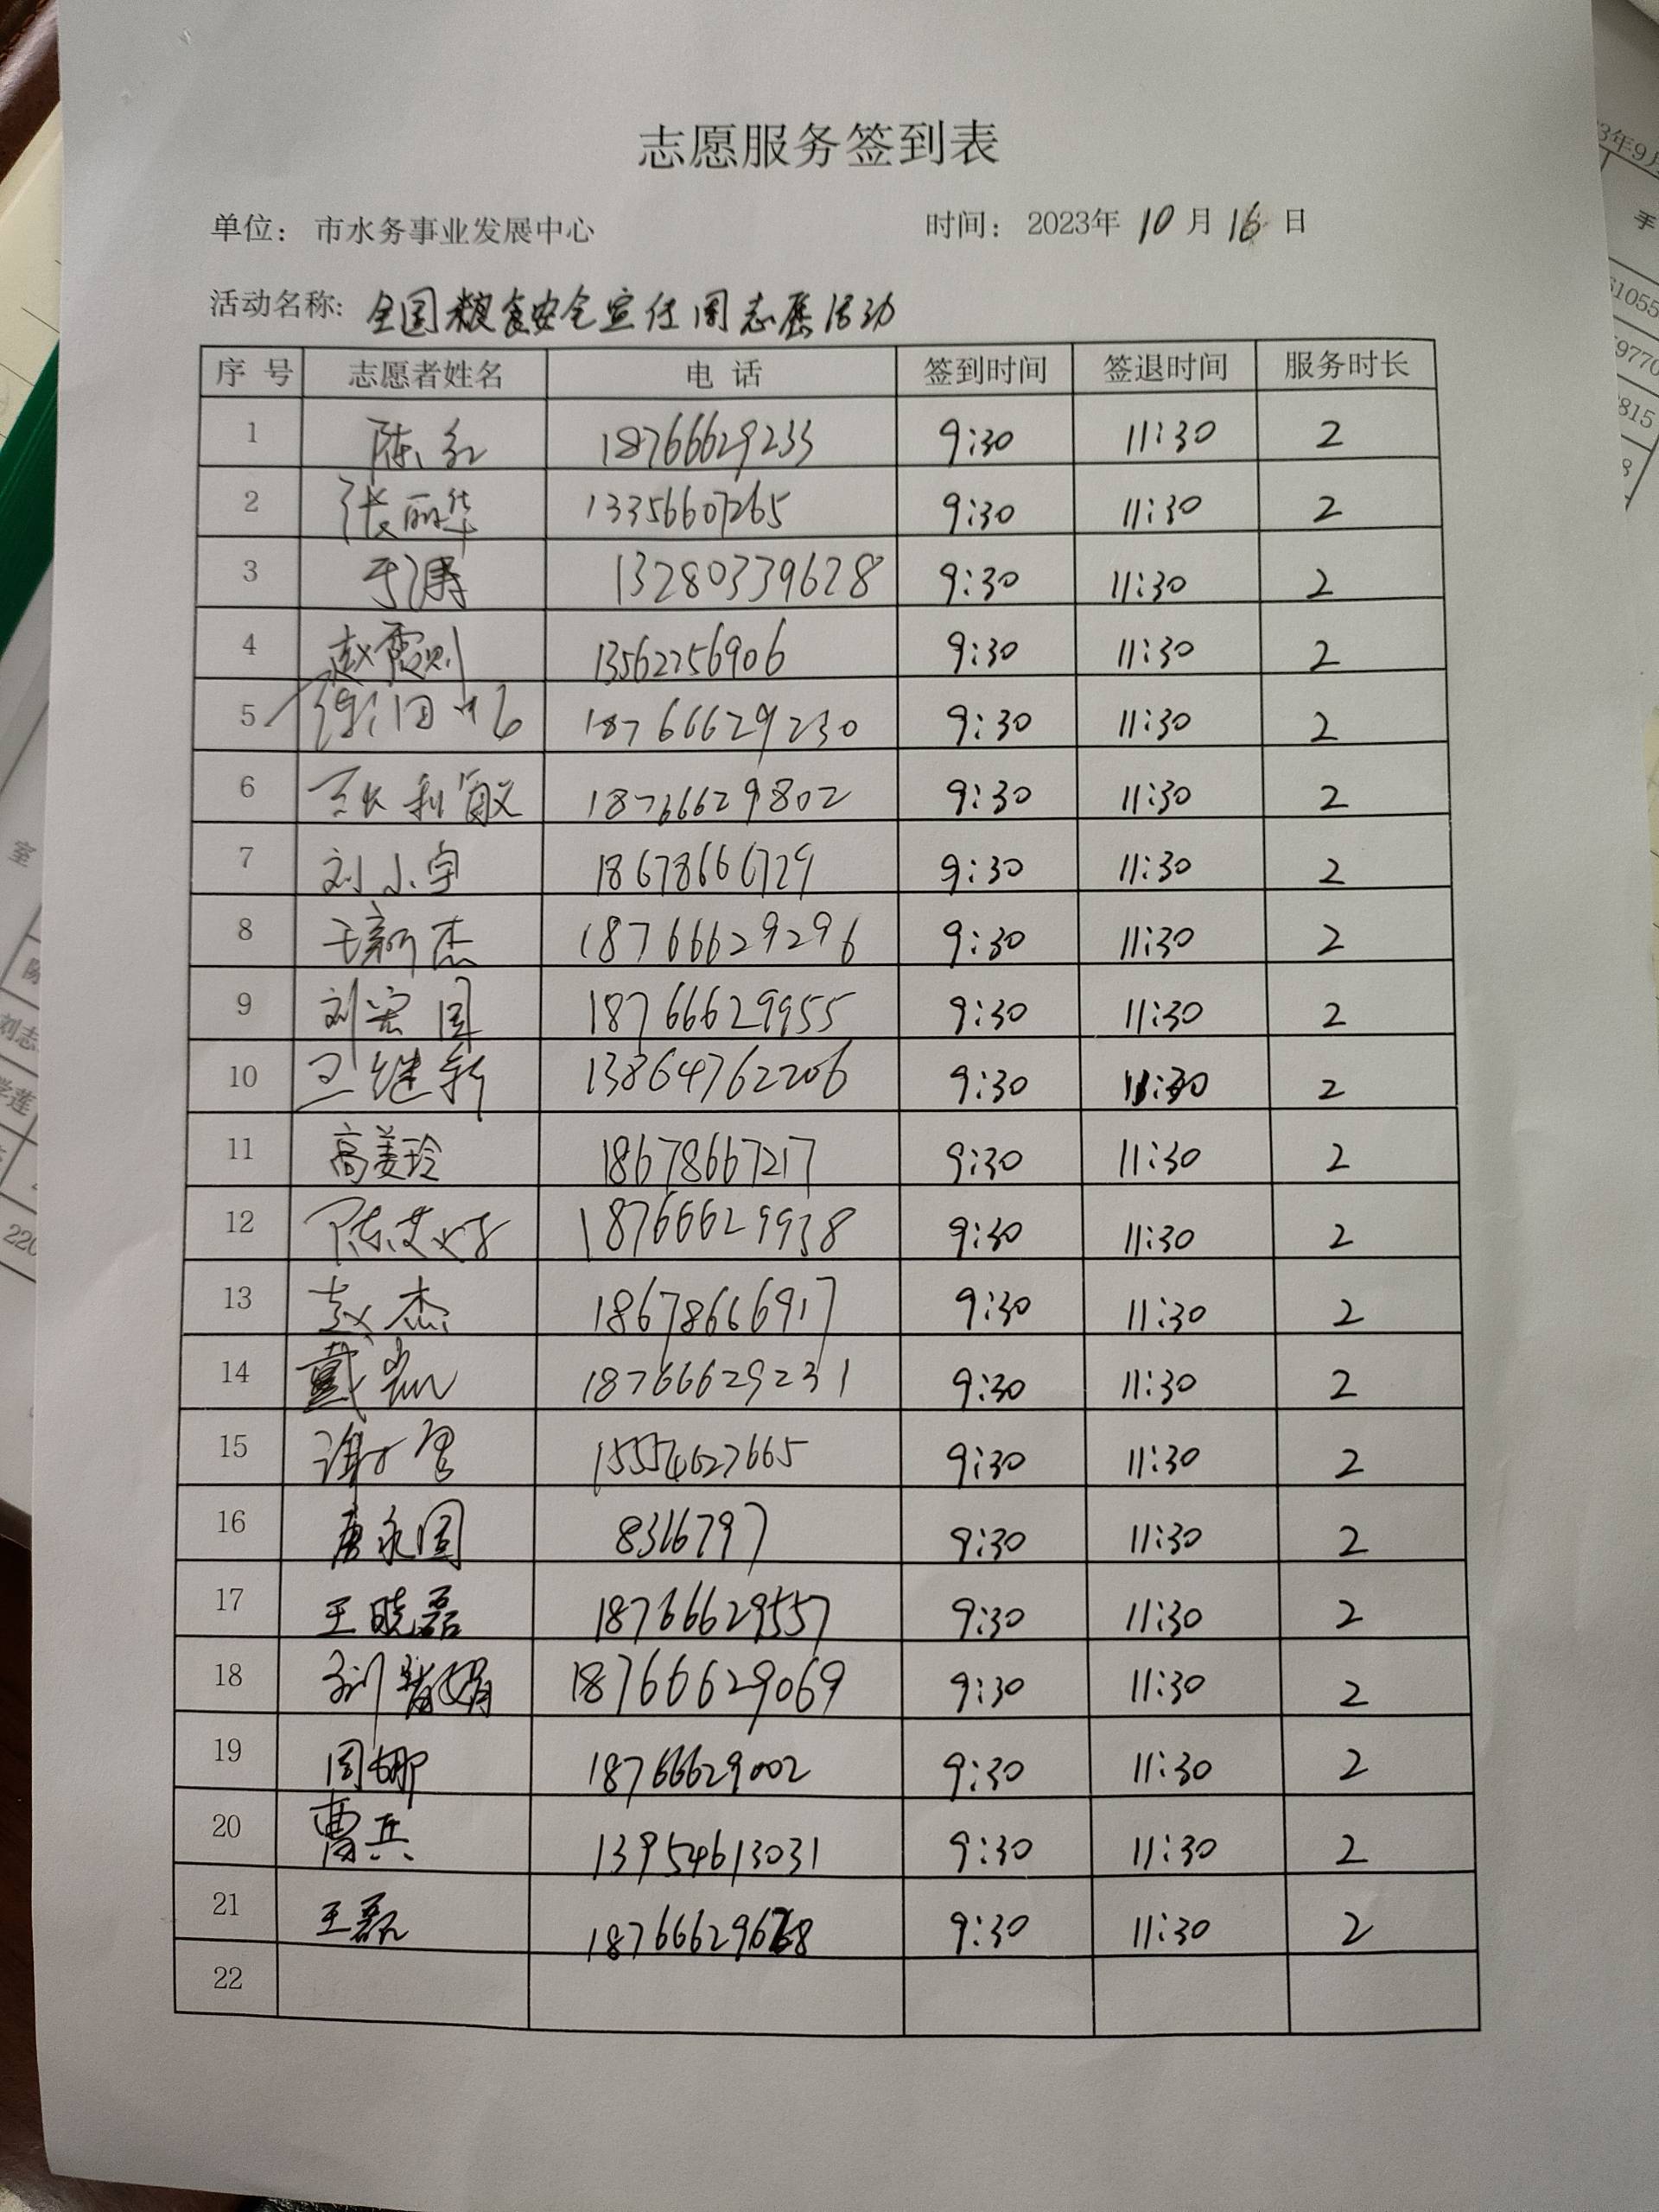 志愿服务签到表
单位：市水务事业发展中心 时间：2023年 10 月 16 日
活动名称: 全国粮食安全宣传周志愿活动
序号 志愿者姓名 电话 签到时间 签退时间 服务时长
1 陈红 18766629233 9:30 11:30 2
2 张丽华 13356607265 9:30 11:30 2
3 于涛 13280339628 9:30 11:30 2
4 赵霞 13562256906 9:30 11:30 2
5 18766629230 9:30 11:30 2
6 利敏 18766629802 9:30 11:30 2
7 刘小宇 18678666729 9:30 11:30 2
8 王新杰 18766629296 9:30 11:30 2
9 刘宏国 18766629955 9:30 11:30 2
10 王继新 13864762206 9:30 11:30 2
11 高美玲 18678667217 9:30 11:30 2
12 陈 18766629938 9:30 11:30 2
13 赵杰 18678666917 9:30 11:30 2
14 戴 18766629231 9:30 11:30 2
15 谢 15554627665 9:30 11:30 2
16 唐永国 8316797 9:30 11:30 2
17 王晓磊 18766629557 9:30 11:30 2
18 刘 18766629069 9:30 11:30 2
19 周娜 18766629002 9:30 11:30 2
20 曹兵 13954613031 9:30 11:30 2
21 王磊 9:30 11:30 2
22
3年9月
手
61055
9770
815
8
室
陈
刘志
学莲
220